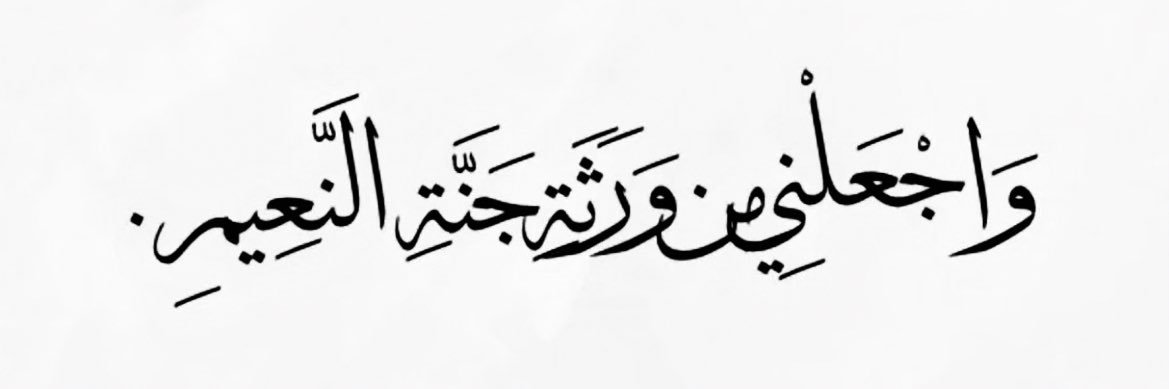 وَاجْعَلْنِي مِن وَرَثَةِ جَنَّةِ النَّعِيمِ.